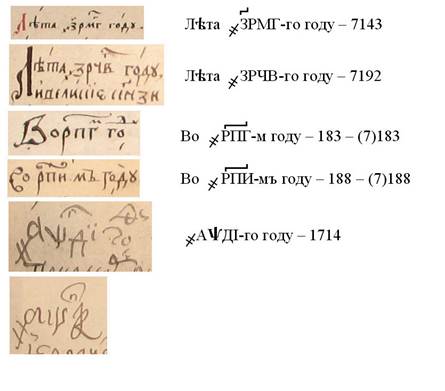 Лѣта ҂зрмг году.
Лѣта ҂ЗРМГ-го году – 7143
Лѣта, ҂зрчв году,
Лѣта ҂ЗРЧВ-го году – 7192
Во рпг го
Во ҂РПГ-м году – 183 – (7)183
Во рпи мъ году
Во ҂РПИ-мъ году – 188 – (7)188
҂аѱдї го
҂АѰДІ-го году – 1714